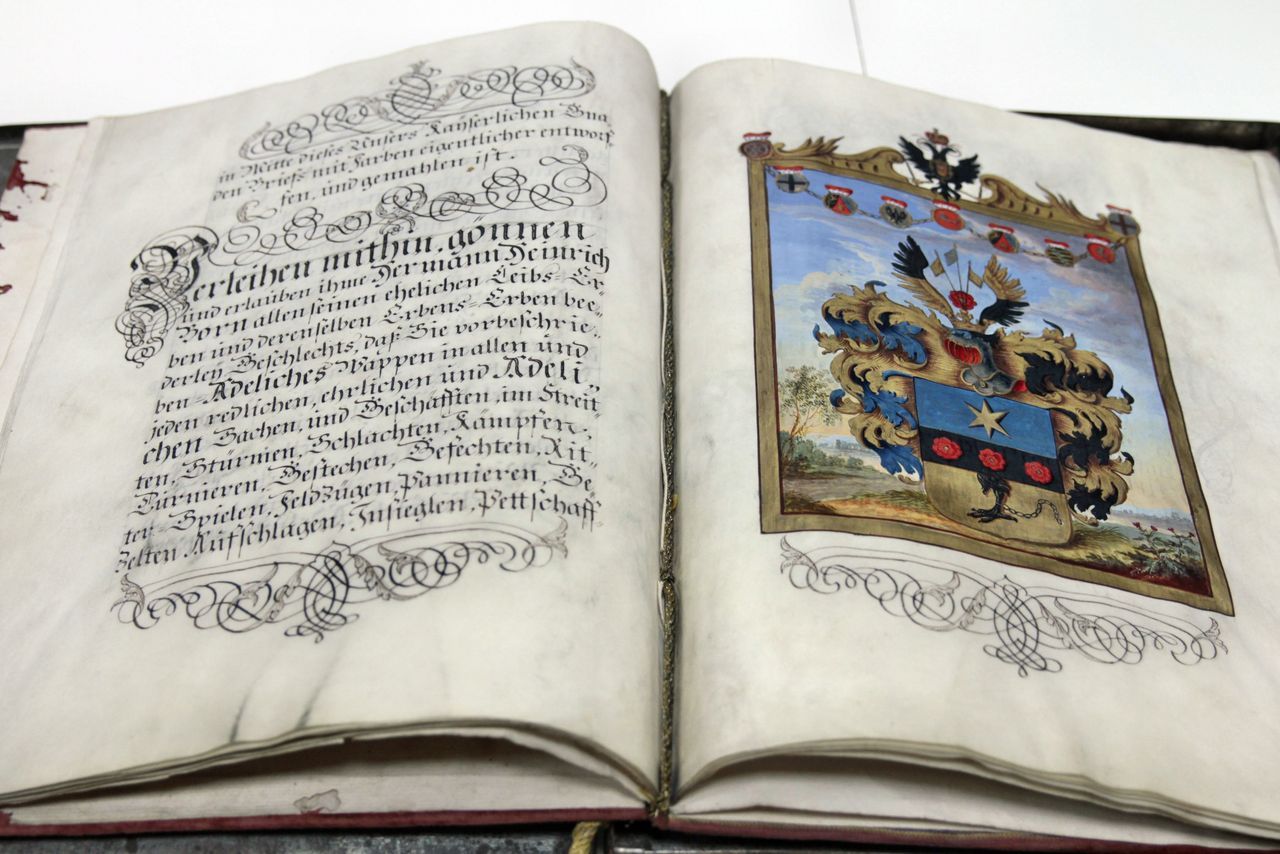 in Mitte dieses Unsers Kayserlichen Gna„
den Briefs mit Farben eigentlicher entworf„
fen, und gemahlen ist.
Verleihen mithin, gönnen
und erlauben ihme Hermann Heinrich
Born allen seinen ehelichen Leibs-Er„
ben und derenselben Erbens-Erben bee„
derley Geschlechts, daß Sie vorbeschrie„
ben-Adeliches Wappen in allen und
jeden redlichen, ehrlichen und Adeli„
chen Sachen, und Geschäfften, im Streit„
ten, Stürmen, Schlachten, Kämpfen,
Turnieren, Gestechen, Gefechten, Rit„
ter-Spielen, Feldzügen, Pannieren, Ge„
zelten Aufschlagen, Insieglen, Pettschaff„